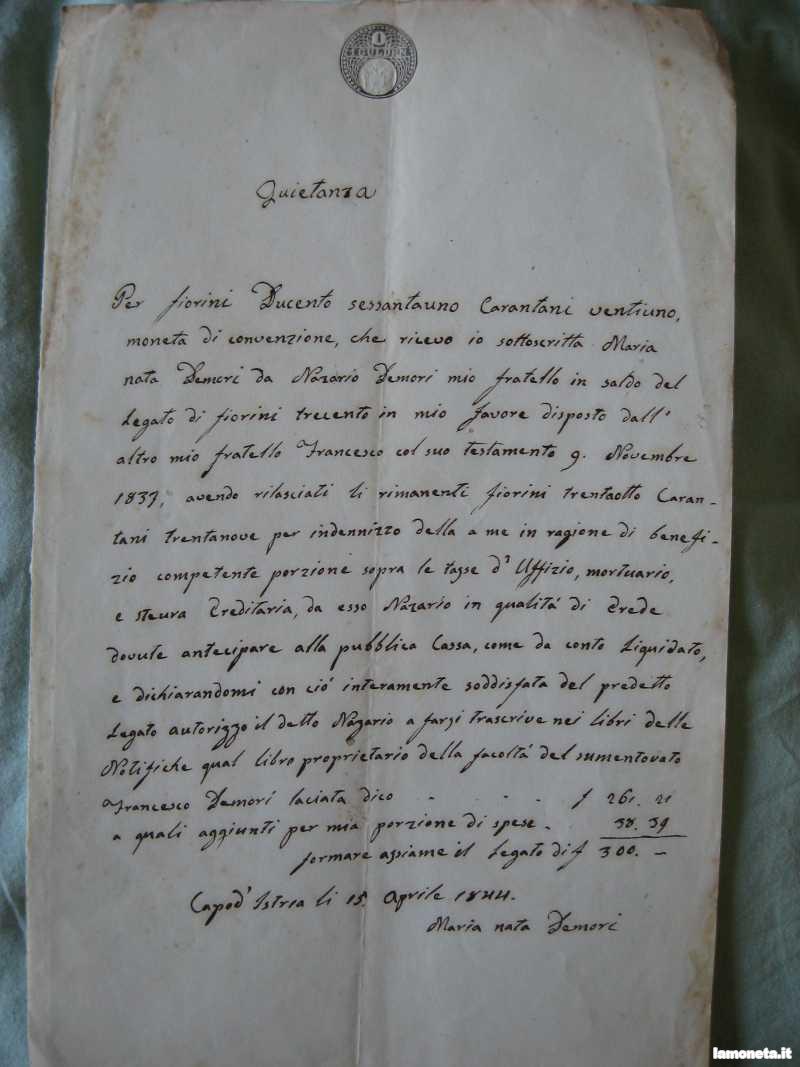 1
Quietanza
Per fiorini Ducento sessantauno Carantani ventiuno,
moneta di convenzione, che ricevo io sottoscritta Maria
nata Demori da Nazario Demori mio fratello in saldo del
Legato di fiorini trecento in mio favore disposto dall'
altro mio fratello Francesco col suo testamento 9. Novembre
1837, avendo rilasciati li rimanenti fiorini trentaotto Caran-
tani trentanove per indennizzo della a me in ragione di benefi-
zio competente porzione sopra le tasse d'Uffizio, mortuario,
e steura Ereditaria, da esso Nazario in qualitá di Erede
dovute antecipare alla pubblica Cassa, come da conto Liquidato,
e dichiarandomi con ció interamente soddisfata del predetto
Legato autorizzo il detto Nazario a farsi trascrive nei libri delle
Notifiche qual libro proprietario della facoltá del sumentovato
Francesco Demori laciata dico - - - f 261. 21
a quali aggiunti per mia porzione di spese - 38. 39
formare assiame il Legato di f 300. -
Capod'Istria li 15. Aprile 1844.
Maria nata Demori
lamoneta.it